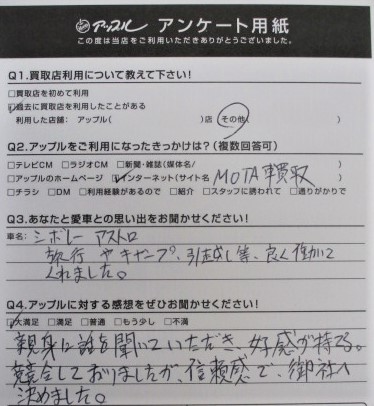 アップル アンケート用紙
この度は当店をご利用いただきありがとうございました。
Q1.買取店利用について教えて下さい!
□買取店を初めて利用
□過去に買取店を利用したことがある
利用した店舗: アップル( )店 その他( )
Q2.アップルをご利用になったきっかけは?(複数回答可)
□テレビCM □ラジオCM □新聞・雑誌(媒体名/ )
□アップルのホームページ □インターネット(サイト名 MOTA車買取 )
□チラシ □DM □利用経験があるので □紹介 □スタッフに誘われて □通りがかりで
Q3.あなたと愛車との思い出をお聞かせください!
車名: シボレー アストロ
旅行 やキャンプ、引越し等、良く働いて
くれました。
Q4.アップルに対する感想をぜひお聞かせください!
□大満足 □満足 □普通 □もう少し □不満
親身に話を聞いていただき、好感が持てる。
競合しておりましたが、信頼感で、御社へ
決めました。